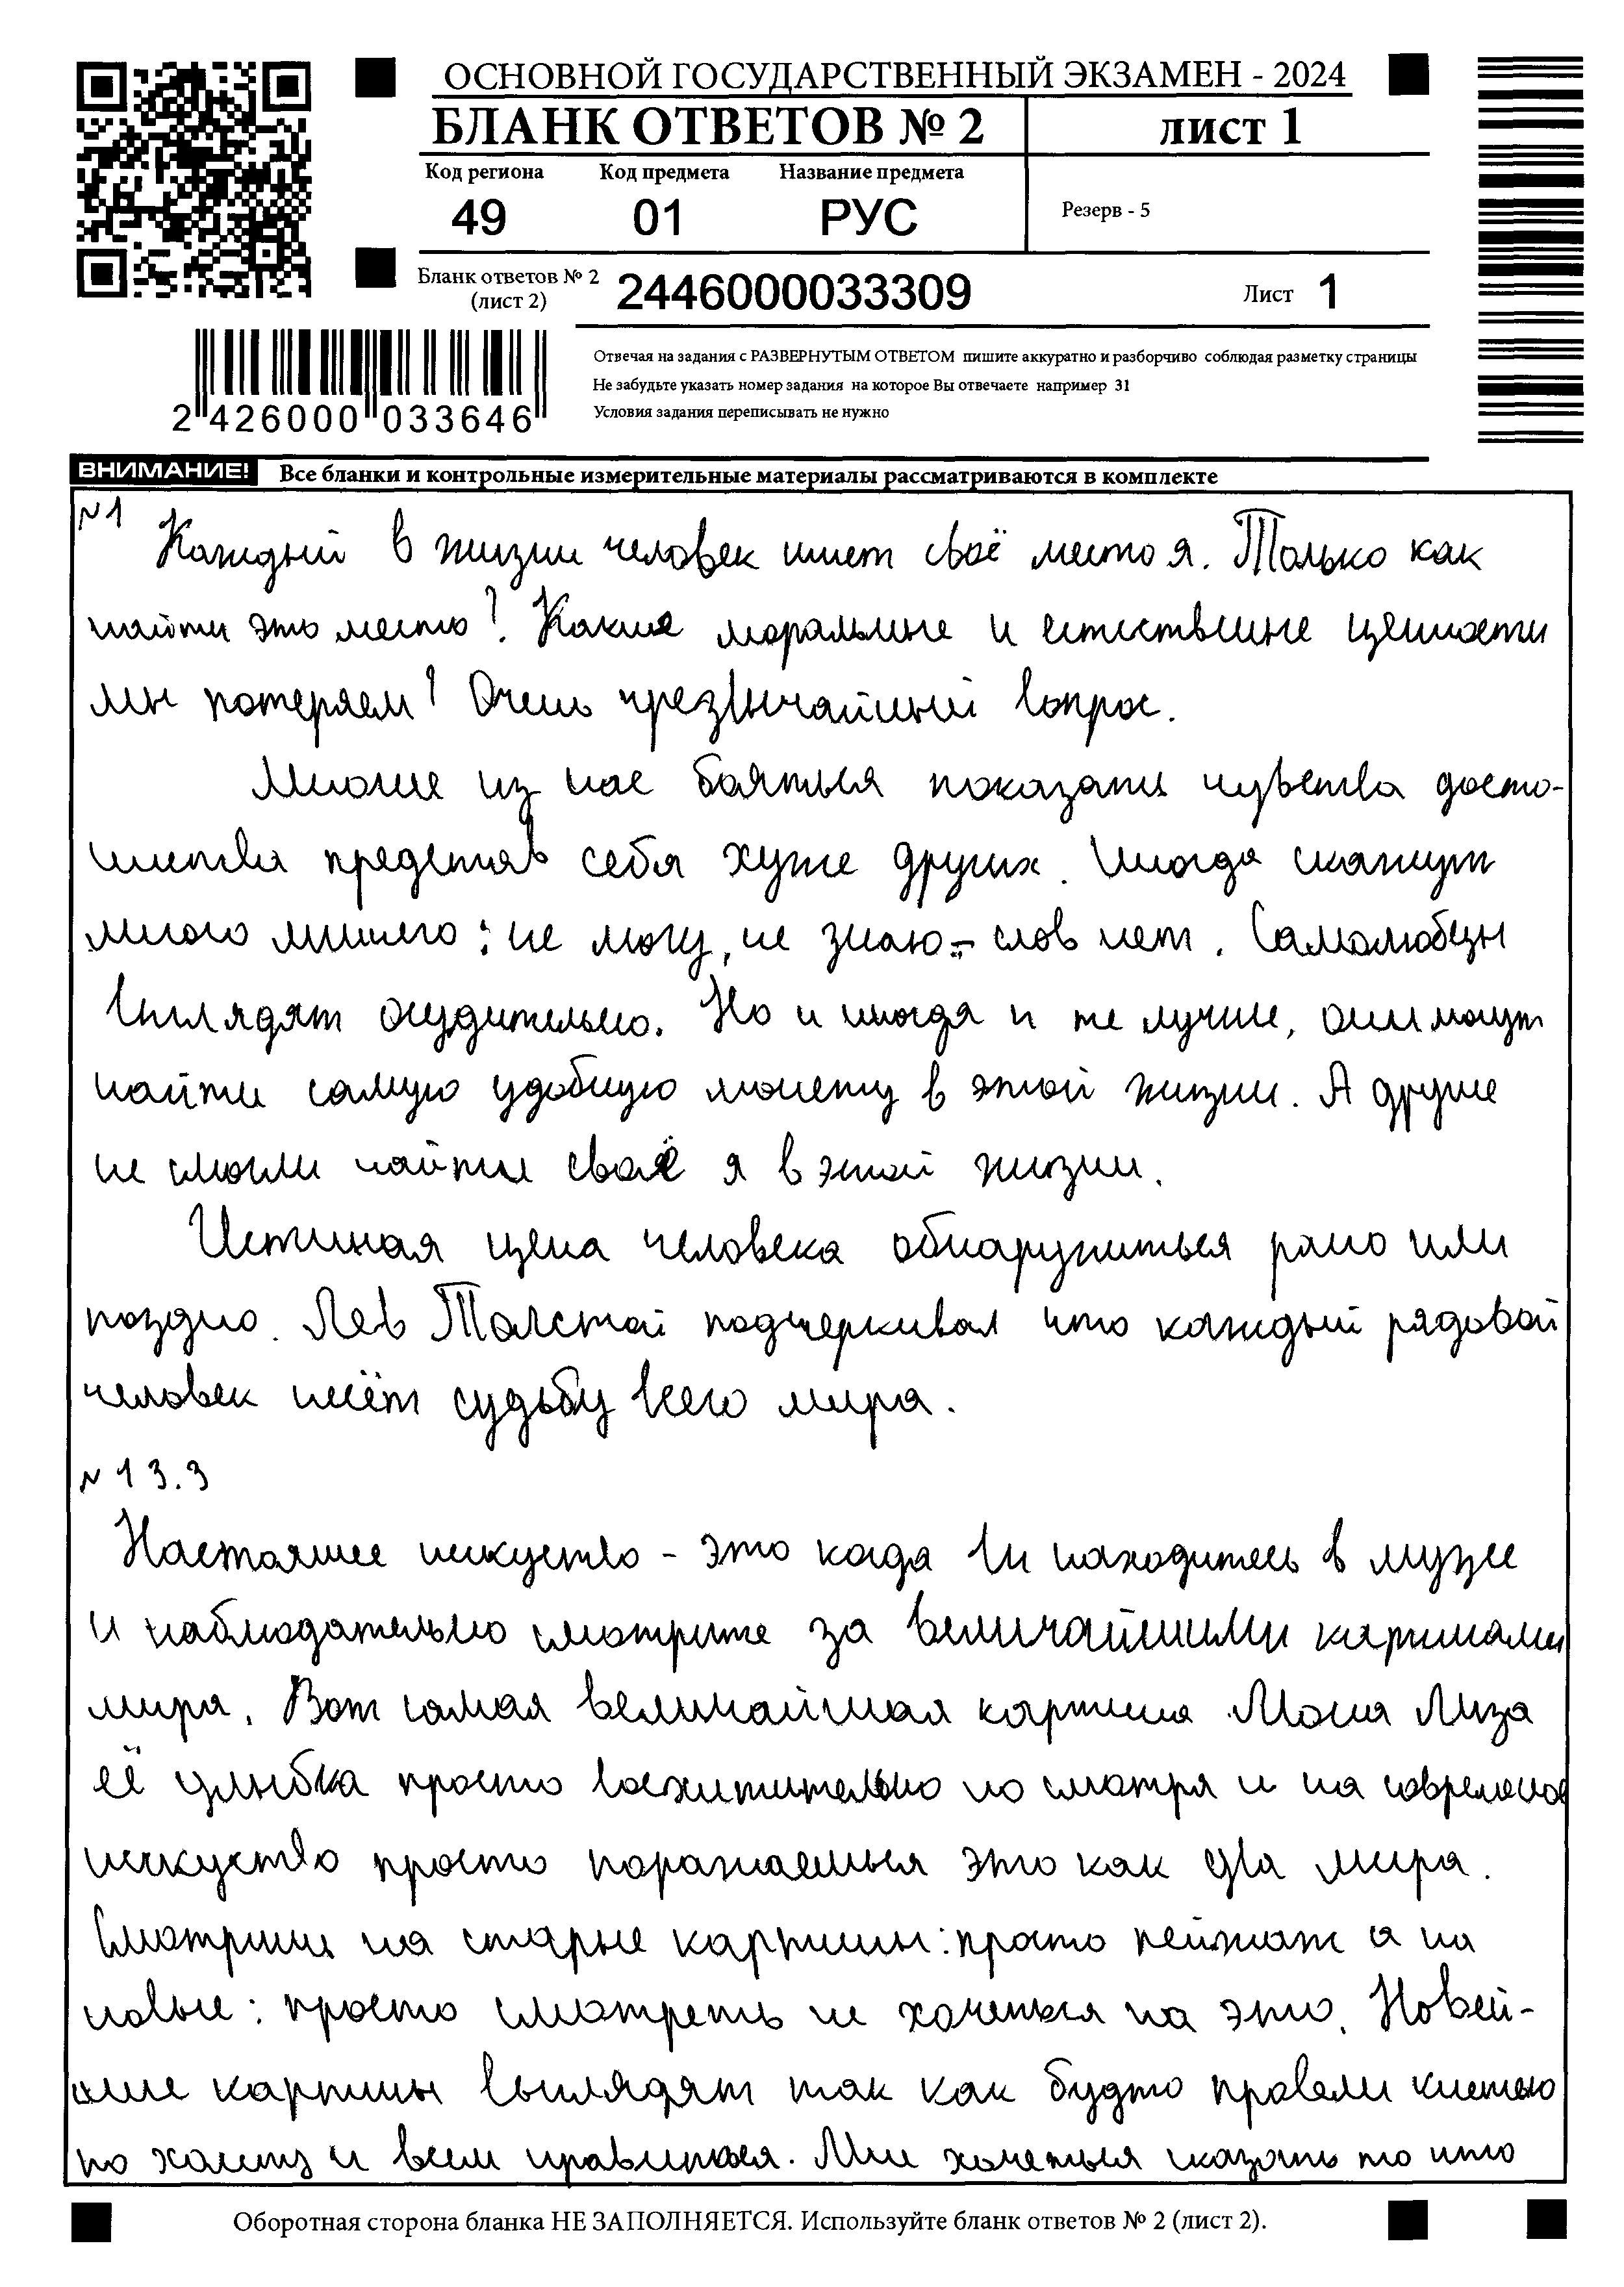 ОСНОВНОЙ ГОСУДАРСТВЕННЫЙ ЭКЗАМЕН - 2024
БЛАНК ОТВЕТОВ № 2 лист 1
Код региона Код предмета Название предмета
49 01 РУС Резерв - 5
Бланк ответов № 2 (лист 2) 2446000033309 Лист 1
Отвечая на задания с РАЗВЕРНУТЫМ ОТВЕТОМ пишите аккуратно и разборчиво соблюдая разметку страницы
Не забудьте указать номер задания на которое Вы отвечаете например 31
Условия задания переписывать не нужно
2 426000 033646
ВНИМАНИЕ! Все бланки и контрольные измерительные материалы рассматриваются в комплекте
№1
Каждый в жизни человек имет своё место я. Только как
найти это место? Какие моральные и естествине ценности
мы потеряем? Очень чрезвычайный вопрос.
Многие из нас бояться показать чувства досто-
инства представ себя хуже других. Иногда скажут
много мнимого: не могу, не знаю - слов нет. Самолюбцы
выглядят осудительно. Но и иногда и те лучше, они могут
найти самую удобную монету в этой жизни. А другие
не смогли найти своё я в этой жизни.
Истиная цена человека обнаружиться рано или
поздно. Лев Толстой подчеркивал что каждый рядовой
человек имеёт судьбу всего мира.
№ 13.3
Настояшее искуство - это когда вы находитесь в музее
и наблюдательно смотрите за величайшими картинами
мира. Вот самая величайшая картина Мона Лиза
её улыбка просто восхитительно но смотря и на современое
искуство просто поражаешься это как два мира.
Смотришь на старые картины: просто пейжаж а на
новые: просто смотреть не хочеться на это. Новей-
шие картины выглядят так как будто провели кистью
по холсту и всем нравиться. Мне хочеться сказать то что
Оборотная сторона бланка НЕ ЗАПОЛНЯЕТСЯ. Используйте бланк ответов № 2 (лист 2).